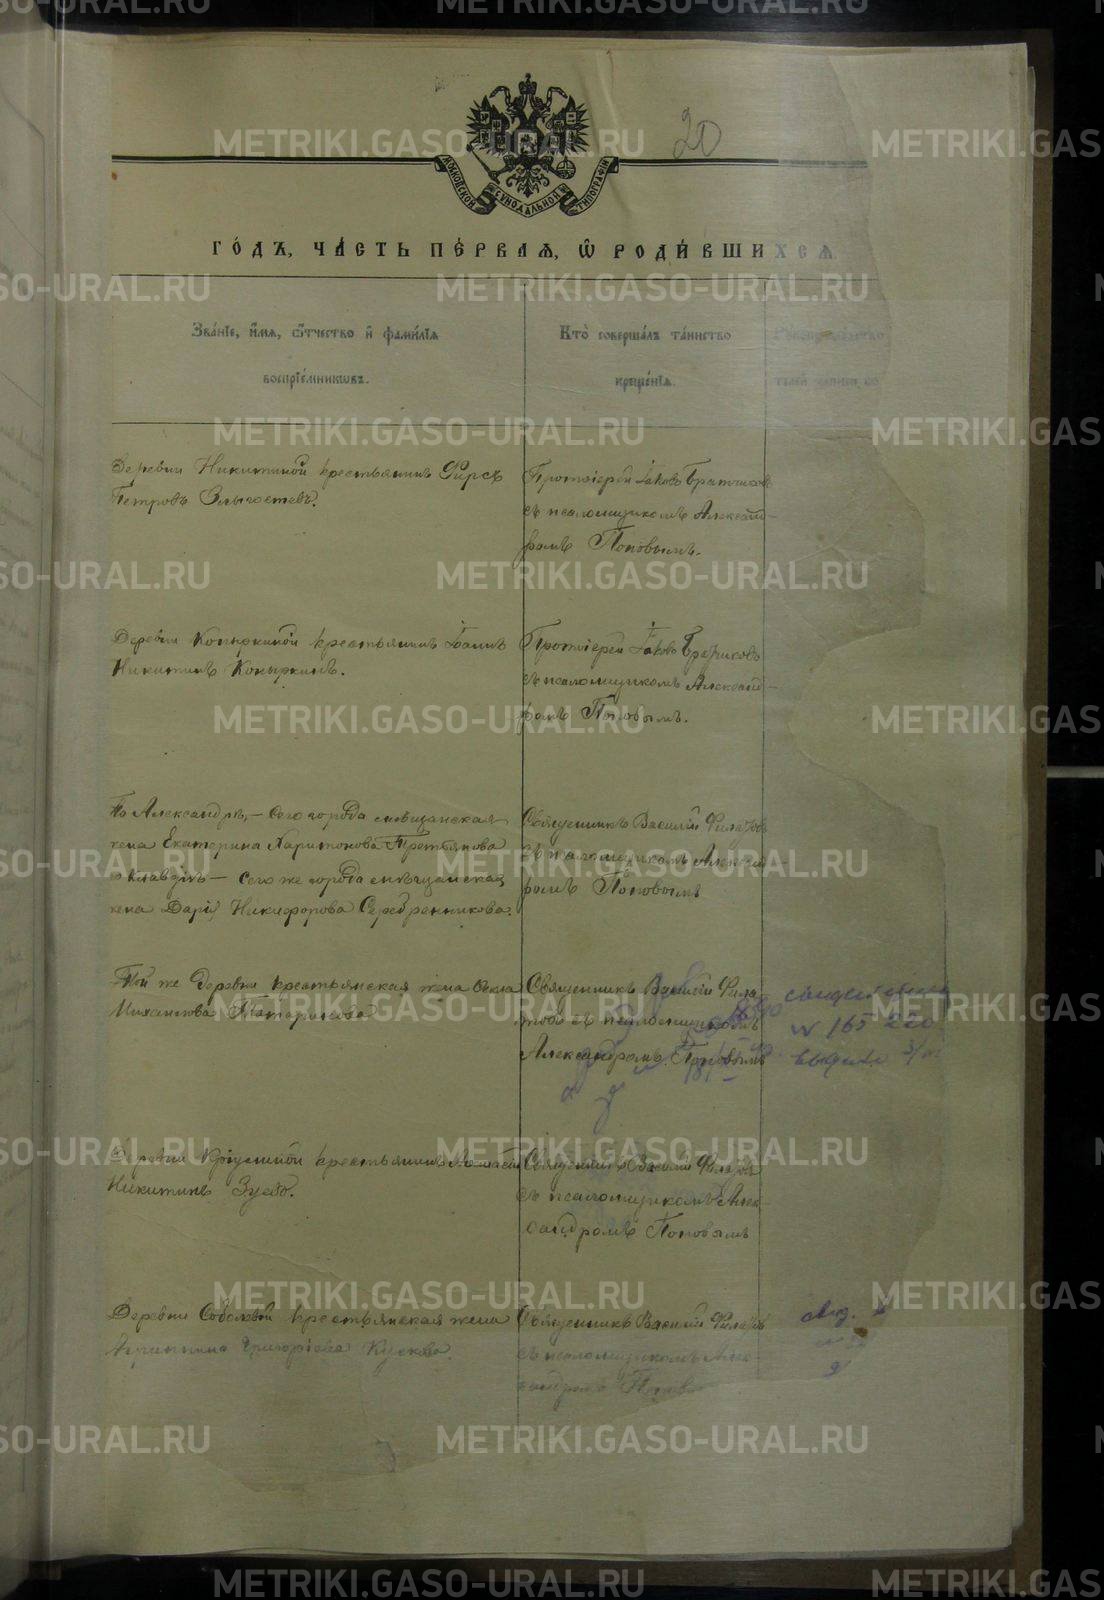 20
МОСКОВСКОЙ СѴНОДАЛЬНОЙ ТИПОГРАФІИ
ГО́ДЪ, ЧА́СТЬ ПЕ́РВАѦ, Ѡ҆ РОДИ́ВШИХСѦ
Зва́нїе, и҆́мѧ, ѻ҆́тчество и҆ фами́лїѧ
воспрїе́мникѡвъ.
Кто̀ соверша́лъ та́инство
креще́нїѧ.
Деревни Никитиной крестьянинъ Фирсъ
Петровъ
Протоіерей Іаковъ
съ псаломщикомъ Александ-
ромъ Поповымъ.
Деревни Копыркиной крестьянинъ Іоаннъ
Никитинъ Копыркинъ.
Протоіерей Іаковъ
съ псаломщикомъ Александ-
ромъ Поповымъ.
По Александрѣ, — сего города мѣщанская
жена Екатерина Харитонова Третьякова
Клавдіѣ — сего же города мѣщанская
жена Дарія Никифорова Серебренникова.
Священникъ Василій Филатовъ
съ псаломщикомъ Александ-
ромъ Поповымъ
Той же деревни крестьянская жена Ѳекла
Михаилова Татаринова
Священникъ Василій Фила-
товъ съ псаломщикомъ
Александромъ Поповымъ
№ 165
Деревни крестьянинъ
Никитинъ Зуевъ.
Священникъ Василій Филатовъ
съ псаломщикомъ Алек-
сандромъ Поповымъ
Деревни Соболевой крестьянская жена
Агриппина Григоріева Кускова.
Священникъ Василій Филатовъ
съ псаломщикомъ Алек-
сандромъ
METRIKI.GASO-URAL.RU